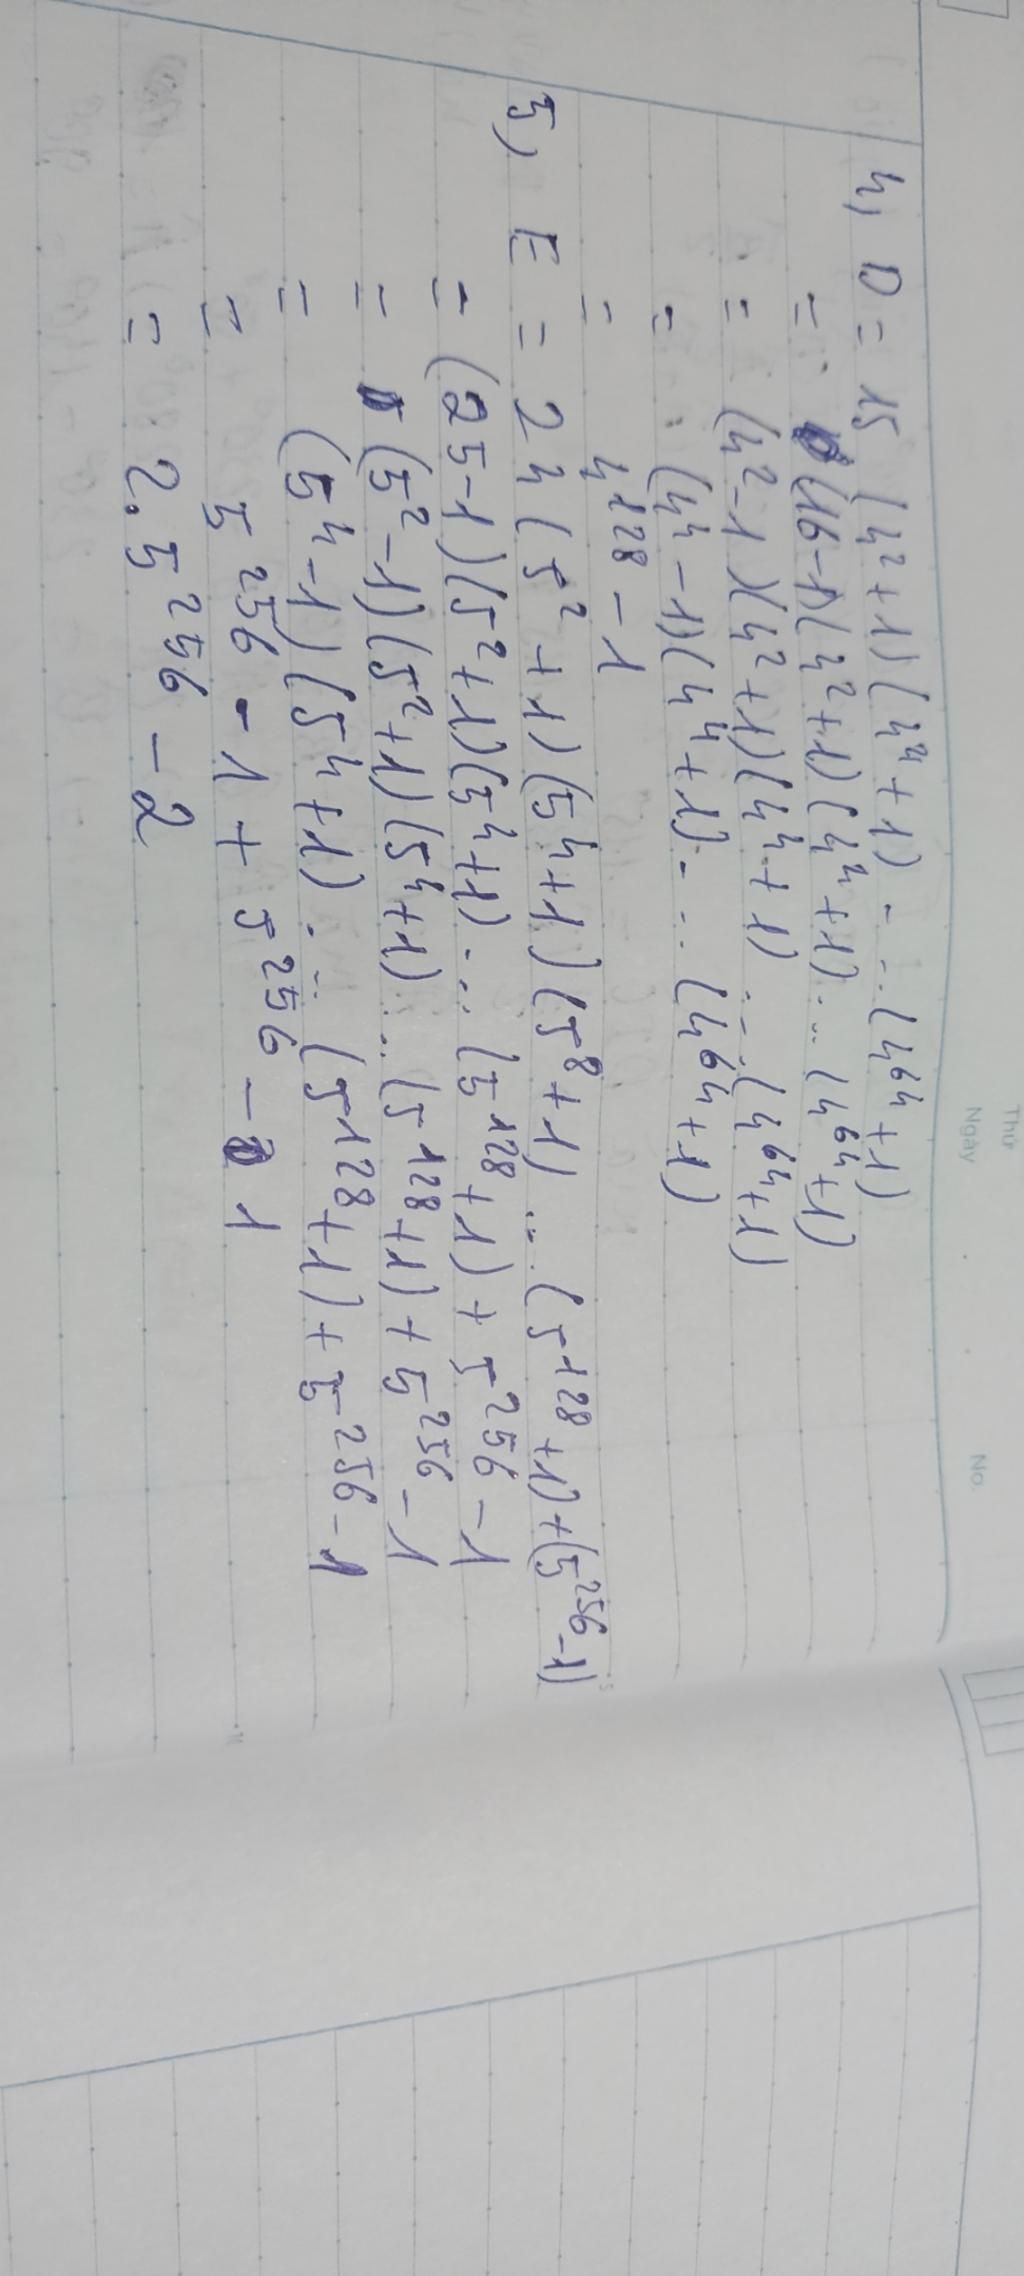 Thứ
Ngày
No.
4, D = 15 (4² + 1)(4⁴ + 1) - ... (4⁶⁴ + 1)
= (16 - 1)(4² + 1)(4⁴ + 1) ... (4⁶⁴ + 1)
= (4² - 1)(4² + 1)(4⁴ + 1) ... (4⁶⁴ + 1)
= (4⁴ - 1)(4⁴ + 1) - ... (4⁶⁴ + 1)
= 4¹²⁸ - 1
5, E = 24 (5² + 1)(5⁴ + 1)(5⁸ + 1) ... (5¹²⁸ + 1) + (5²⁵⁶ - 1)
= (25 - 1)(5² + 1)(5⁴ + 1) ... (5¹²⁸ + 1) + 5²⁵⁶ - 1
= (5² - 1)(5² + 1)(5⁴ + 1) ... (5¹²⁸ + 1) + 5²⁵⁶ - 1
= (5⁴ - 1)(5⁴ + 1) ... (5¹²⁸ + 1) + 5²⁵⁶ - 1
= 5²⁵⁶ - 1 + 5²⁵⁶ - 1
= 2.5²⁵⁶ - 2